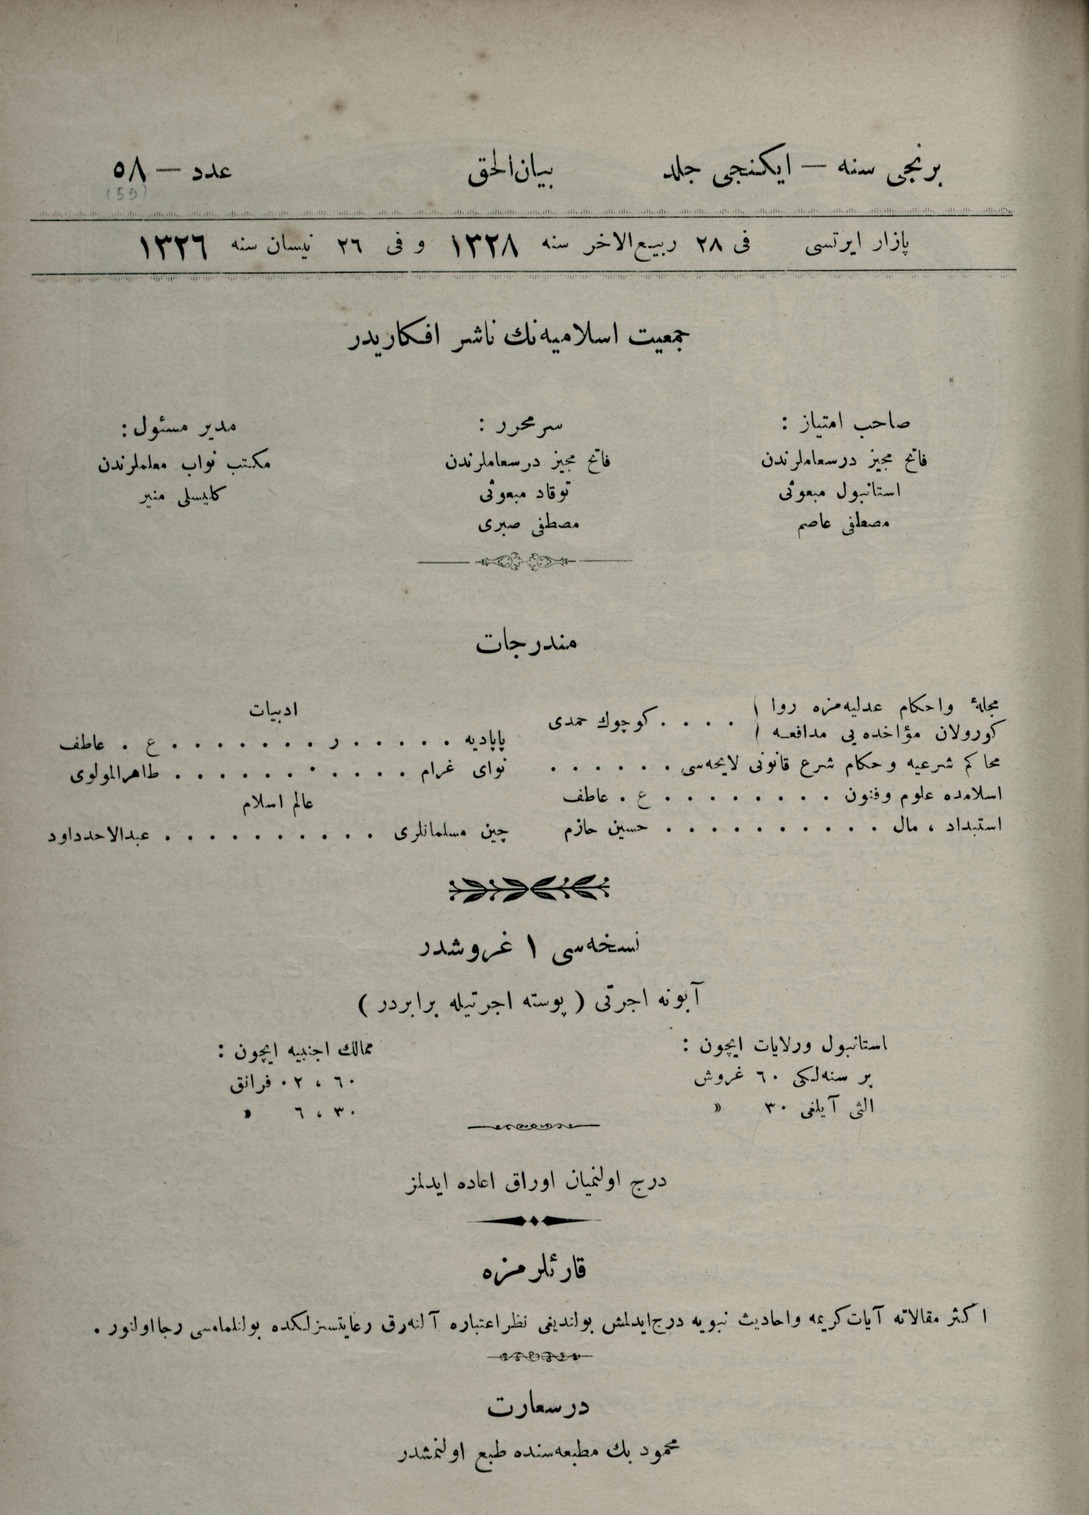 برنجی سنه — ایکنجی جلد
بیان‌الحق
عدد — ٥٨
(59)
پازار ایرتسی فی ٢٨ ربیع‌الاخر سنه ١٣٢٨ و فی ٢٦ نیسان سنه ١٣٢٦
جمعیت اسلامیه‌نك ناشر افكاریدر
صاحب امتیاز :
فاتح مجیز درسعاملرندن
استانبول مبعوثی
مصطفی عاصم
سرمحرر :
فاتح مجیز درسعاملرندن
توقاد مبعوثی
مصطفی صبری
مدیر مسئول :
مكتب نواب معلملرندن
كلیسلی منیر
مندرجات
مجلهٔ واحكام عدلیه‌مزه روا
كورولان مؤاخده‌یی مدافعه . . . . كوچوك حمدی
محاكم شرعیه و حكام شرع قانونی لایحه‌سی . . . . . .
اسلامده علوم وفنون . . . . . . . . ع . عاطف
استبداد ، مال . . . . . . . . . . حسین حازم
ادبیات
پاپادیه . . . . . ر . . . . . . . ع . عاطف
نوای غرام . . . . . . . . . . . طاهرالمولوی
عالم اسلام
چین مسلمانلری . . . . . . . . . . عبدالاحدداود
نسخه‌سی ١ غروشدر
آبونه اجرتی ( پوسته اجرتیله برابردر )
استانبول ورلایات ایچون :
بر سنه‌لكی ٦٠ غروش
التی آیلغی ٣٠ »
ممالك اجنبیه ایچون :
٦٠ ، ٠٢ فرانق
٣٠ ، ٦ »
درج اولنمیان اوراق اعاده ایدلمز
قارئلرمزه
اكثر مقالاته آیات‌كریمه واحادیث نبویه درج‌ایدلمش بولندیغی نظراعتباره آلنه‌رق رعایتسزلكده بولنلمامسی رجااولنور .
درسعارت
محمود بك مطبعه‌سنده طبع اولنمشدر